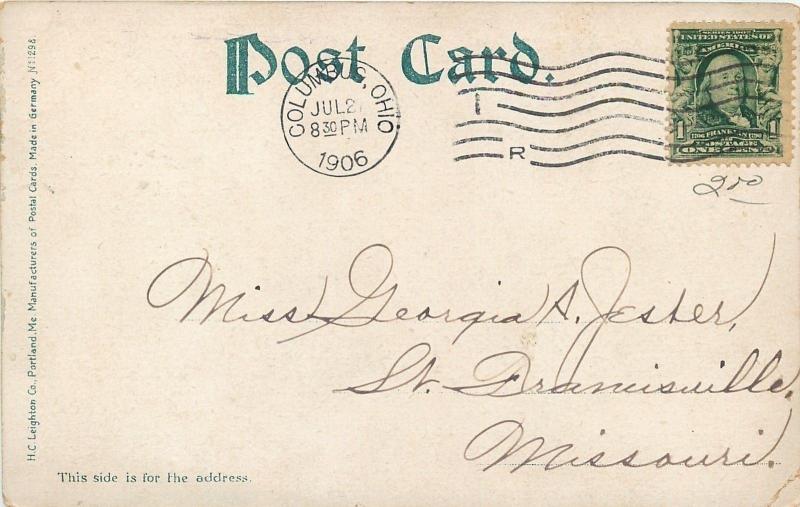 Post Card.
COLUMBUS, OHIO.
JUL 2
8 30 PM
1906
1
R
SERIES 1902
UNITED STATES OF
AMERICA
1
1706 FRANKLIN 1790
POSTAGE
ONE CENT
2.00
Miss Georgia A. Jester,
St. Francisville,
Missouri.
This side is for the address.
H.C. Leighton Co., Portland, Me. Manufacturers of Postal Cards. Made in Germany N11298